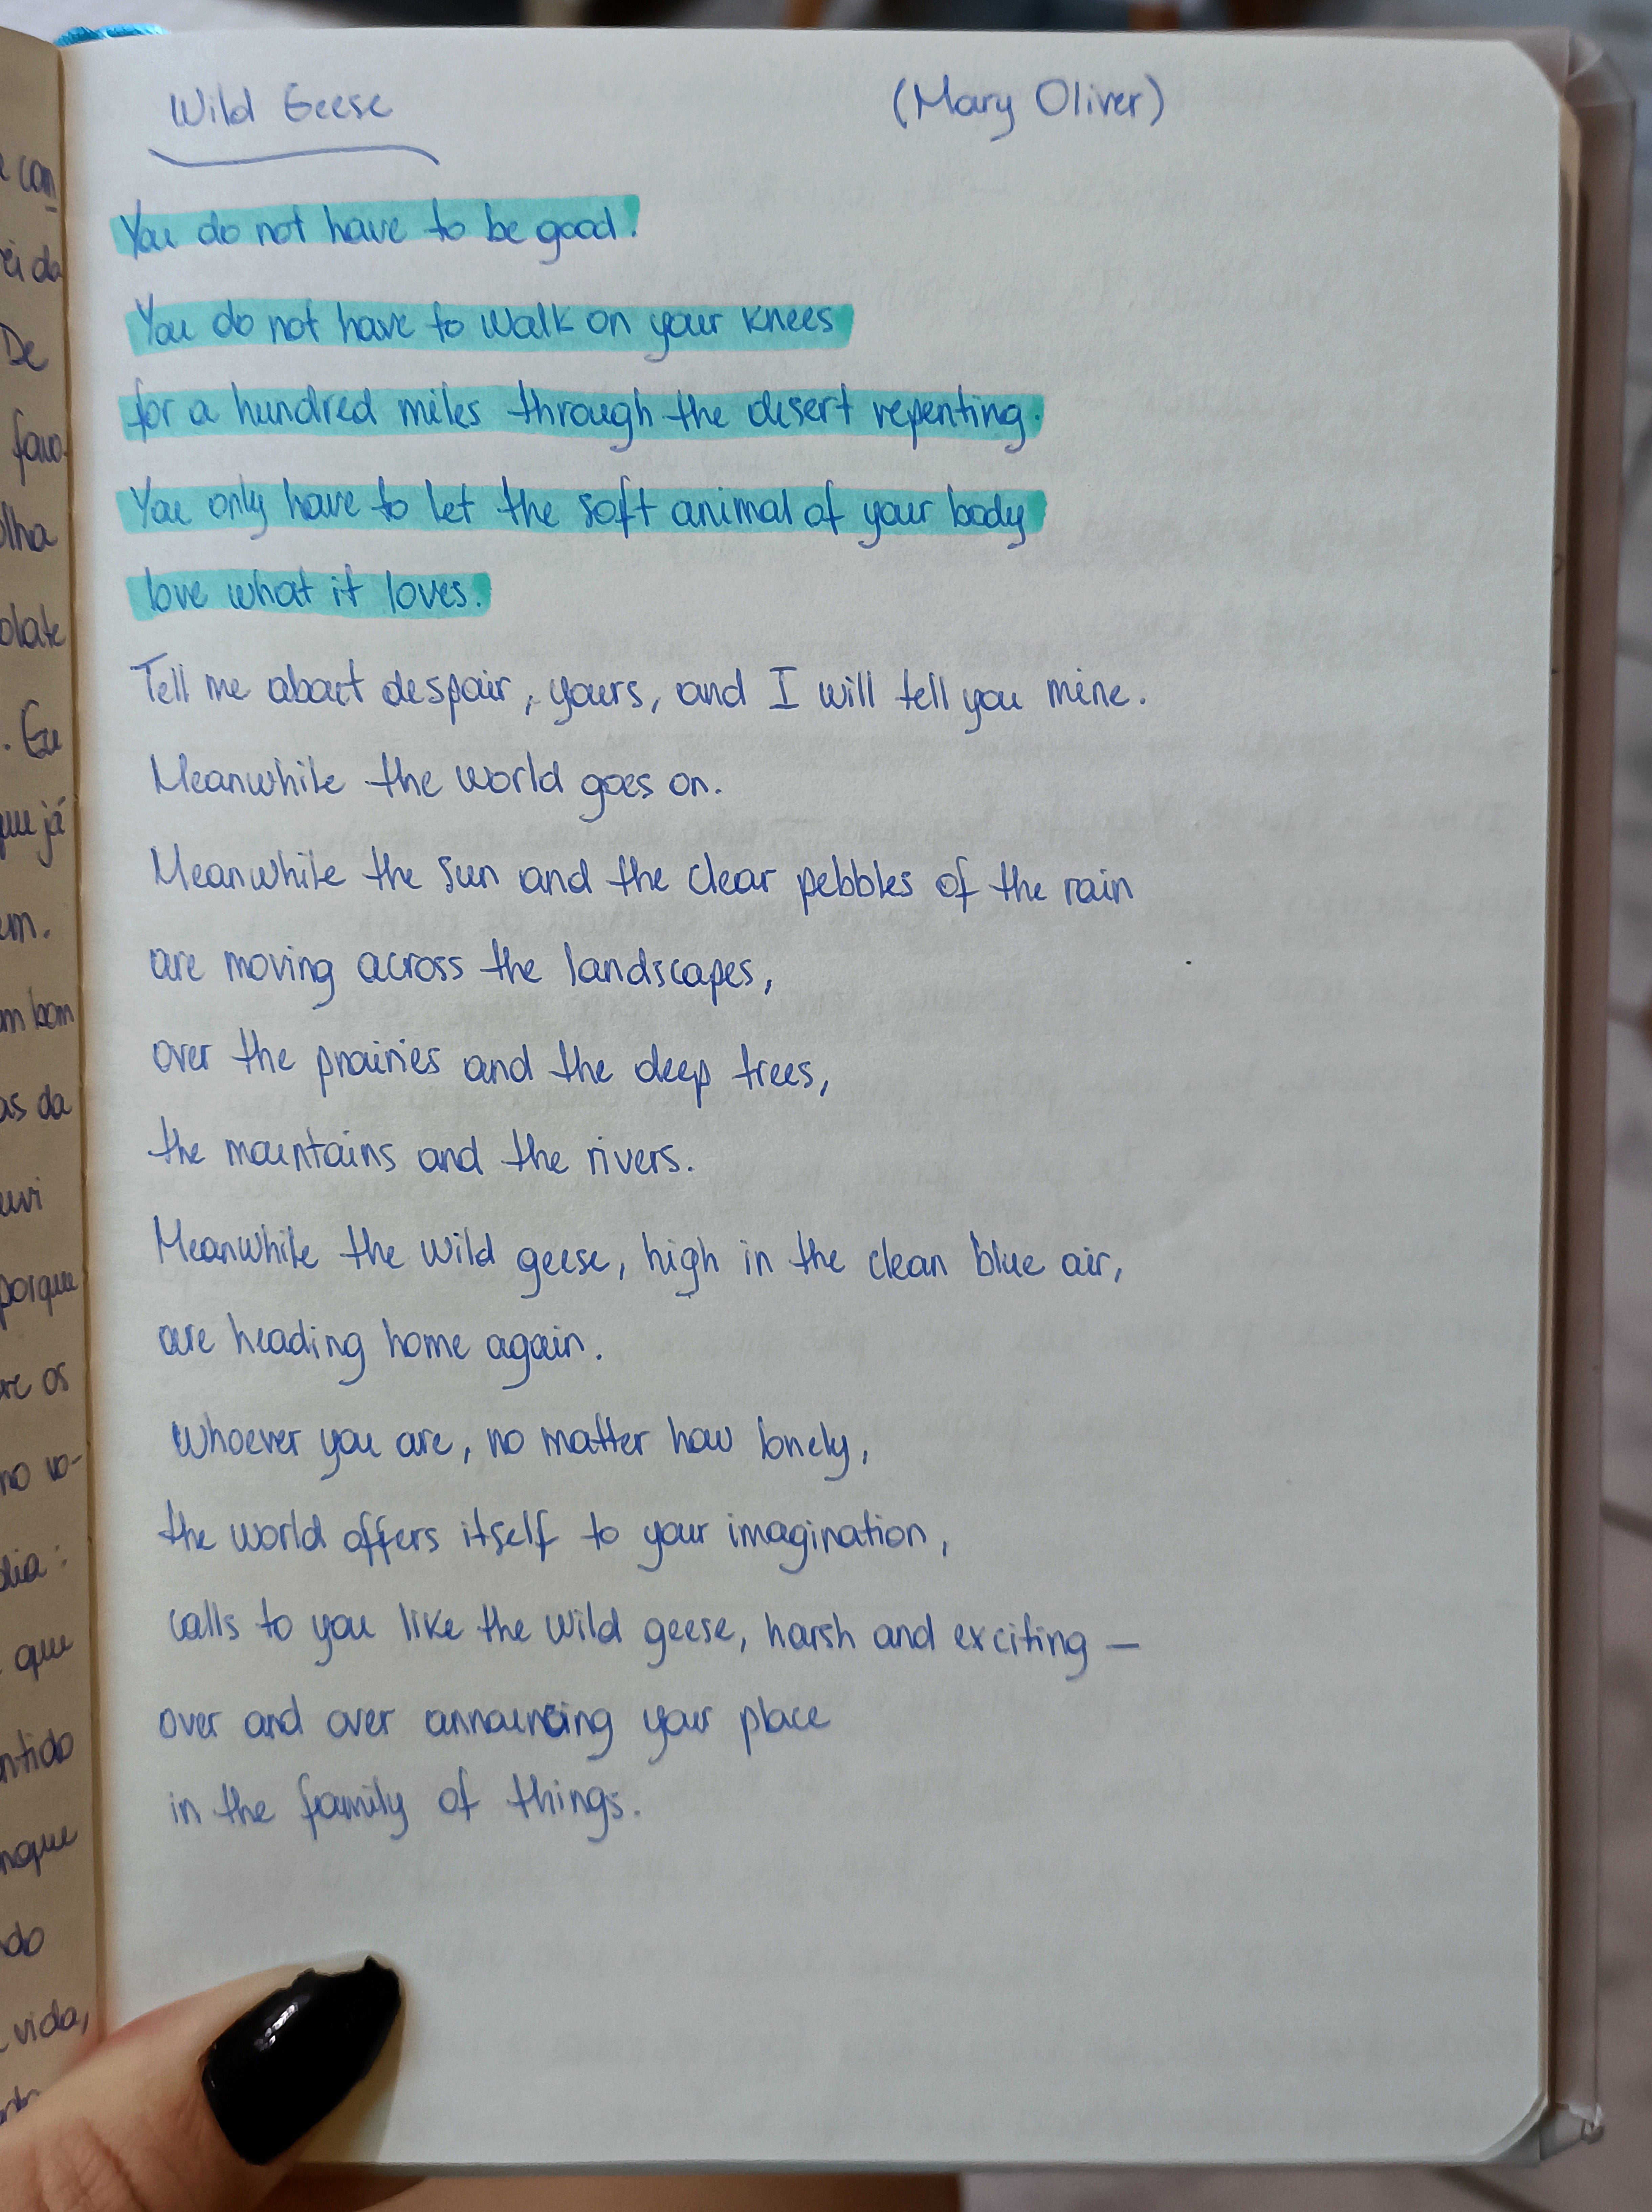 can
De
olha
. Eu
que já
em.
m bom
as da
porque
os
no vo-
dia:
que
vida,
Wild Geese (Mary Oliver)
You do not have to be good.
You do not have to walk on your knees
for a hundred miles through the desert repenting.
You only have to let the soft animal of your body
love what it loves.
Tell me about despair, yours, and I will tell you mine.
Meanwhile the world goes on.
Meanwhile the sun and the clear pebbles of the rain
are moving across the landscapes,
over the prairies and the deep trees,
the mountains and the rivers.
Meanwhile the wild geese, high in the clean blue air,
are heading home again.
Whoever you are, no matter how lonely,
the world offers itself to your imagination,
calls to you like the wild geese, harsh and exciting —
over and over announcing your place
in the family of things.